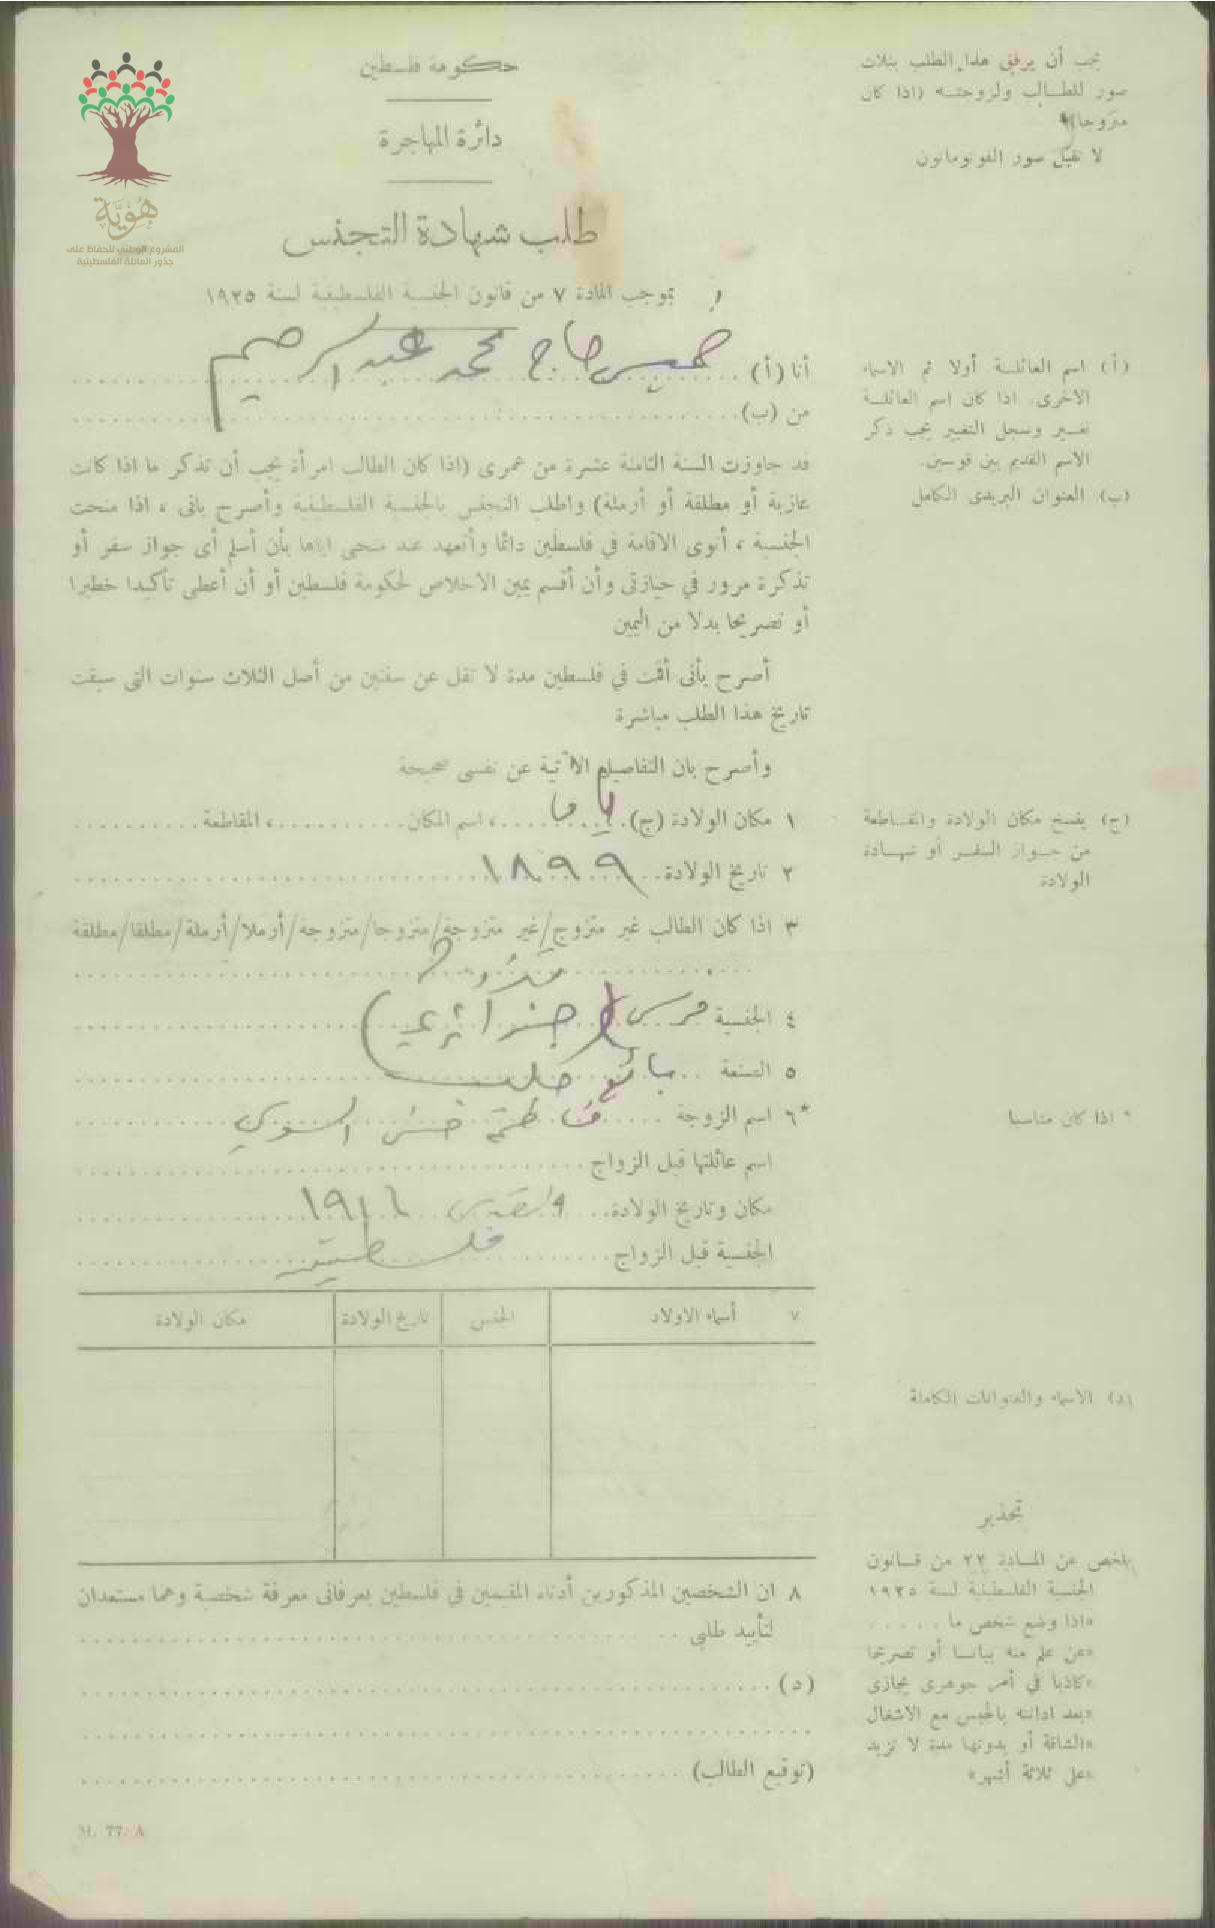 هُوِيَّة
المشروع الوطني للحفاظ على
جذور العائلة الفلسطينية
حكومة فلسطين
دائرة المهاجرة
طلب شهادة التجنس
بموجب المادة ٧ من قانون الجنسية الفلسطينية لسنة ١٩٢٥
يجب أن يرفق هذا الطلب بثلاث
صور للطالب ولزوجته (اذا كان
متزوجا)
لا تقبل صور الفوتوماتون
أنا (أ) خميس حاج محمد عبد الرحيم
من (ب)
قد جاوزت السنة الثامنة عشرة من عمرى (اذا كان الطالب امرأة يجب أن تذكر ما اذا كانت
عازبة أو مطلقة أو أرملة) واطلب التجنس بالجنسية الفلسطينية وأصرح بانى ، اذا منحت
الجنسية ، أنوى الاقامة في فلسطين دائما وأتعهد عند منحى اياها بأن أسلم أى جواز سفر أو
تذكرة مرور في حيازتى وأن أقسم يمين الاخلاص لحكومة فلسطين أو أن أعطى تأكيدا خطيرا
أو تصريحا بدلا من اليمين
أصرح بأنى أقمت في فلسطين مدة لا تقل عن سنتين من أصل الثلاث سنوات التى سبقت
تاريخ هذا الطلب مباشرة
وأصرح بان التفاصيل الآتية عن نفسى صحيحة
١ مكان الولادة (ج) يافا ، اسم المكان ، المقاطعة
٢ تاريخ الولادة ١٨٩٩
٣ اذا كان الطالب غير متزوج/غير متزوجة/متزوجا/متزوجة/أرملا/أرملة/مطلقا/مطلقة
متزوج
٤ الجنسية (جزائري)
٥ الصنعة بائع
*٦ اسم الزوجة فاطمة
اسم عائلتها قبل الزواج
مكان وتاريخ الولادة القدس
الجنسية قبل الزواج
٧ أسماء الاولاد الجنس تاريخ الولادة مكان الولادة
٨ ان الشخصين المذكورين أدناه المقيمين في فلسطين يعرفانى معرفة شخصية وهما مستعدان
لتأييد طلبي
(د)
(توقيع الطالب)
M. 77. A
(أ) اسم العائلة أولا ثم الاسماء
الاخرى. اذا كان اسم العائلة
تغير وسجل التغيير يجب ذكر
الاسم القديم بين قوسين.
(ب) العنوان البريدى الكامل
(ج) ينسخ مكان الولادة والمقاطعة
من جواز السفر أو شهادة
الولادة
* اذا كان مناسبا
(د) الاسماء والعنوانات الكاملة
تحذير
يلخص عن المادة ٢٢ من قانون
الجنسية الفلسطينية لسنة ١٩٢٥
«اذا وضع شخص ما
«عن علم منه بيانا أو تصريحا
«كاذبا في أمر جوهرى يجازى
«بعد ادانته بالحبس مع الاشغال
«الشاقة أو بدونها مدة لا تزيد
«على ثلاثة أشهر»